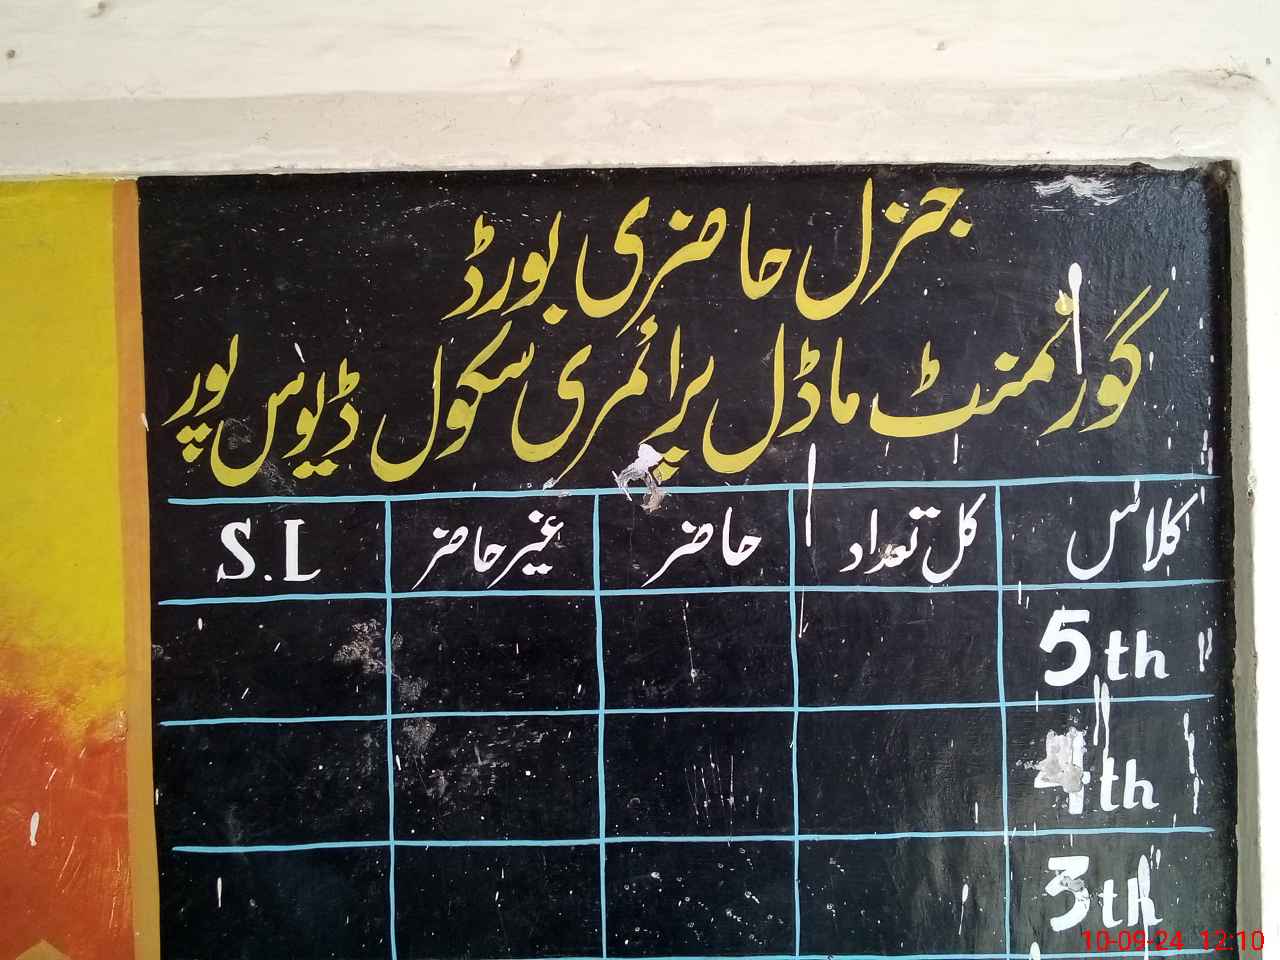 جنرل حاضری بورڈ
گورنمنٹ ماڈل پرائمری سکول ڈیوس پور
کلاس کل تعداد حاضر غیر حاضر S.L
5th
4th
3th
10-09-24 12:10